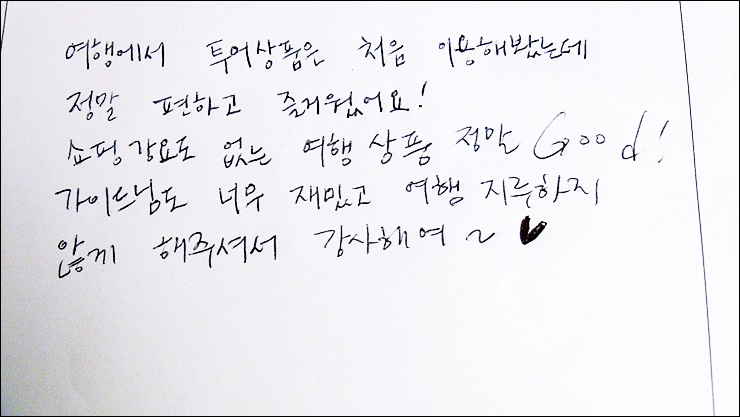 여행에서 투어상품은 처음 이용해봤는데
정말 편하고 즐거웠어요!
쇼핑강요도 없는 여행 상품 정말 Good!
가이드님도 너무 재밌고 여행 지루하지
않게 해주셔서 감사해여~ ♥